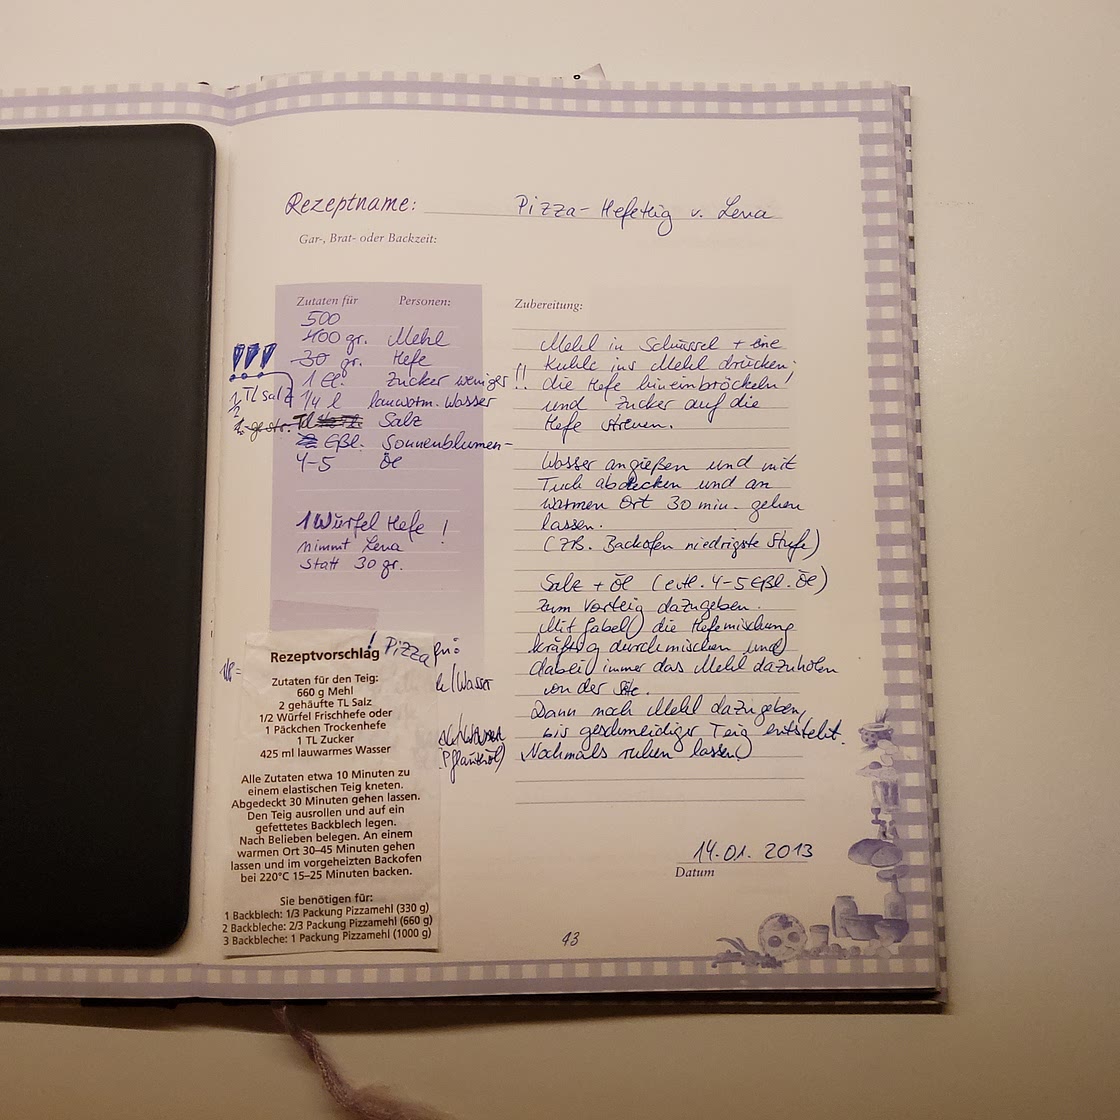 Rezeptname: Pizza-Hefeteig v. Lena
Gar-, Brat- oder Backzeit:
Zutaten für Personen:
500
400 gr. Mehl
30 gr. Hefe
1 El. Zucker weniger
1/4 l lauwarm. Wasser
1/2 TL Salz
1 gestr. Tl Salz
Eßl. Sonnenblumen-
4-5 Öl
1 Würfel Hefe !
nimmt Lena
statt 30 gr.
Zubereitung:
Mehl in Schüssel + eine
Kuhle ins Mehl drücken.
!! die Hefe hineinbröckeln!
und Zucker auf die
Hefe streuen.
Wasser angießen und mit
Tuch abdecken und an
warmen Ort 30 min. gehen
lassen.
(z.B. Backofen niedrigste Stufe)
Salz + Öl (evtl. 4-5 Eßl. Öl)
zum Vorteig dazugeben.
Mit Gabel die Hefemischung
kräftig durchmischen und
dabei immer das Mehl dazuholen
von der Seite.
Dann noch Mehl dazugeben,
bis geschmeidiger Teig entsteht.
Nochmals ruhen lassen
14.01.2013
Datum
43
! Pizza
Wasser
Pflanzenöl)
Rezeptvorschlag
Zutaten für den Teig:
660 g Mehl
2 gehäufte TL Salz
1/2 Würfel Frischhefe oder
1 Päckchen Trockenhefe
1 TL Zucker
425 ml lauwarmes Wasser
Alle Zutaten etwa 10 Minuten zu
einem elastischen Teig kneten.
Abgedeckt 30 Minuten gehen lassen.
Den Teig ausrollen und auf ein
gefettetes Backblech legen.
Nach Belieben belegen. An einem
warmen Ort 30–45 Minuten gehen
lassen und im vorgeheizten Backofen
bei 220°C 15–25 Minuten backen.
Sie benötigen für:
1 Backblech: 1/3 Packung Pizzamehl (330 g)
2 Backbleche: 2/3 Packung Pizzamehl (660 g)
3 Bleche: 1 Packung Pizzamehl (1000 g)